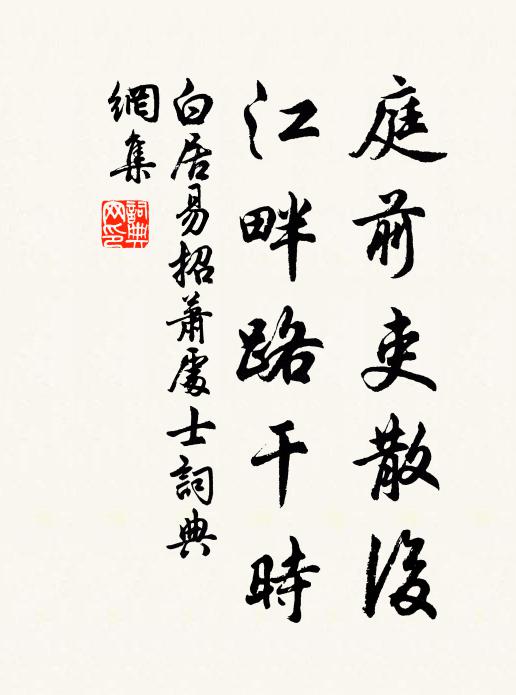 庭前吏散後
江畔路干時
白居易招蕭處士詞典
網集
詞典
网印